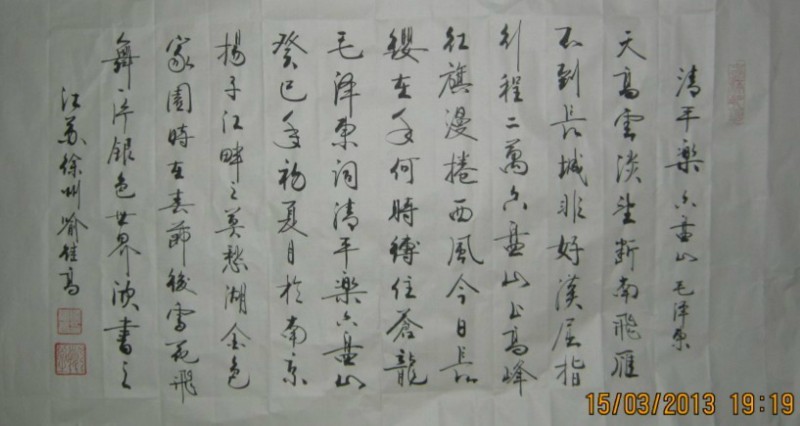 清平樂 六盤山 毛澤東
天高雲淡望斷南飛雁
不到長城非好漢屈指
行程二萬六盤山上高峰
紅旗漫捲西風今日長
纓在手何時縛住蒼龍
毛泽东词清平樂六盘山
癸巳年初夏日於南京
揚子江畔之莫愁湖金色
家園時在春節後雪花飛
舞一片銀色世界欣書之
江苏徐州喻佳高
15/03/2013 19:19